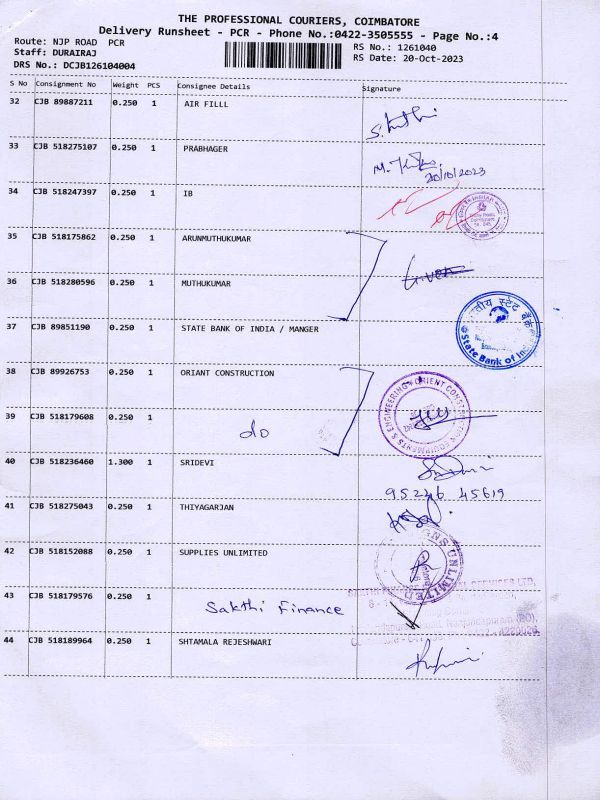 THE PROFESSIONAL COURIERS, COIMBATORE
Delivery Runsheet - PCR - Phone No.:0422-3505555 - Page No.:4
Route: NJP ROAD PCR
Staff: DURAIRAJ
DRS No.: DCJB126104004
RS No.: 1261040
RS Date: 20-Oct-2023
S No Consignment No Weight PCS Consignee Details Signature
32 CJB 89887211 0.250 1 AIR FILLL
33 CJB 518275107 0.250 1 PRABHAGER
20/10/2023
34 CJB 518247397 0.250 1 IB
35 CJB 518175862 0.250 1 ARUNMUTHUKUMAR
36 CJB 518280596 0.250 1 MUTHUKUMAR
37 CJB 89851190 0.250 1 STATE BANK OF INDIA / MANGER
भारतीय स्टेट बैंक
State Bank of India
38 CJB 89926753 0.250 1 ORIANT CONSTRUCTION
39 CJB 518179608 0.250 1 do
40 CJB 518236460 1.300 1 SRIDEVI
95246 45619
41 CJB 518275043 0.250 1 THIYAGARJAN
42 CJB 518152088 0.250 1 SUPPLIES UNLIMITED
43 CJB 518179576 0.250 1 Sakthi Finance
44 CJB 518189964 0.250 1 SHTAMALA REJESHWARI